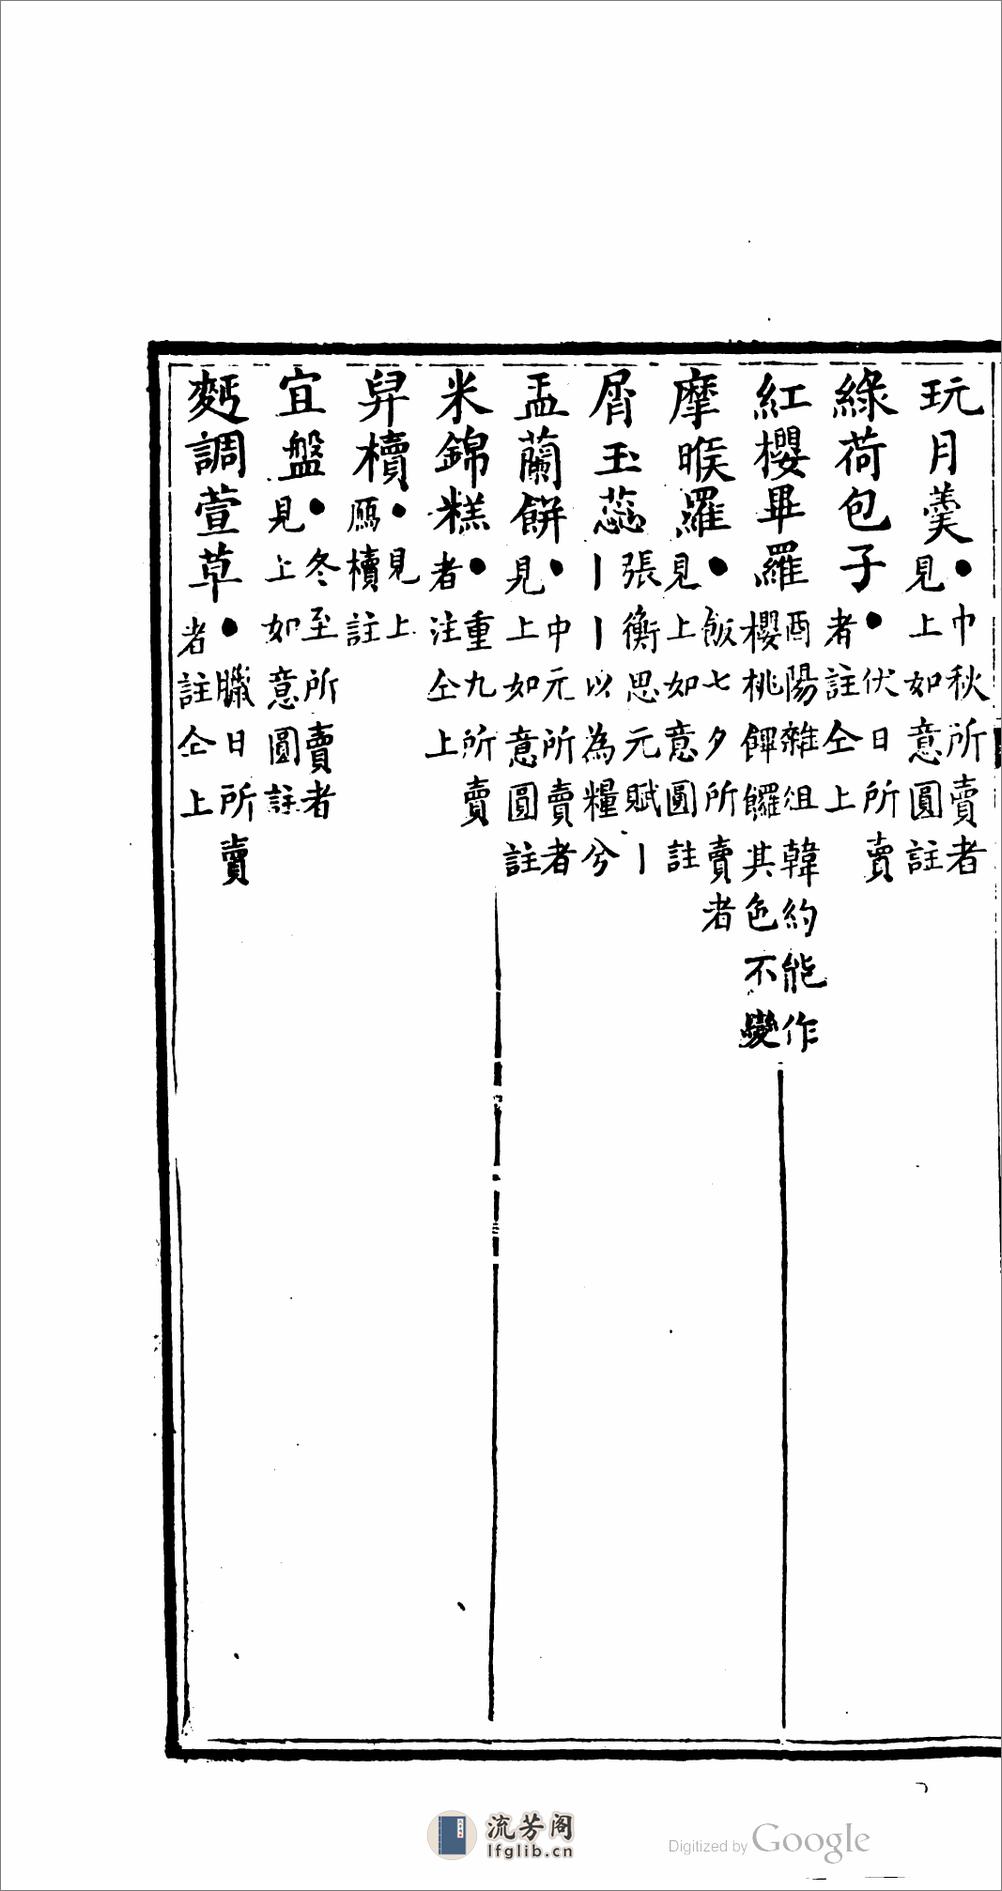 玩月羮●中秋所賣者見上如意圓註
綠荷包子●伏日所賣者註仝上
紅櫻畢羅酉陽雜俎韓約能作櫻桃饆饠其色不變
摩睺羅●飯七夕所賣者見上如意圓註
屑玉蕊張衡思元賦丨丨丨以為糧兮
盂蘭餅●中元所賣者見上如意圓註
米錦糕●重九所賣者注仝上
舁櫝●見上鴈櫝註
宜盤●冬至所賣者見上如意圓註
麫調萱草●臘日所賣者註仝上
流芳阁
lfglib.cn
Digitized by Google